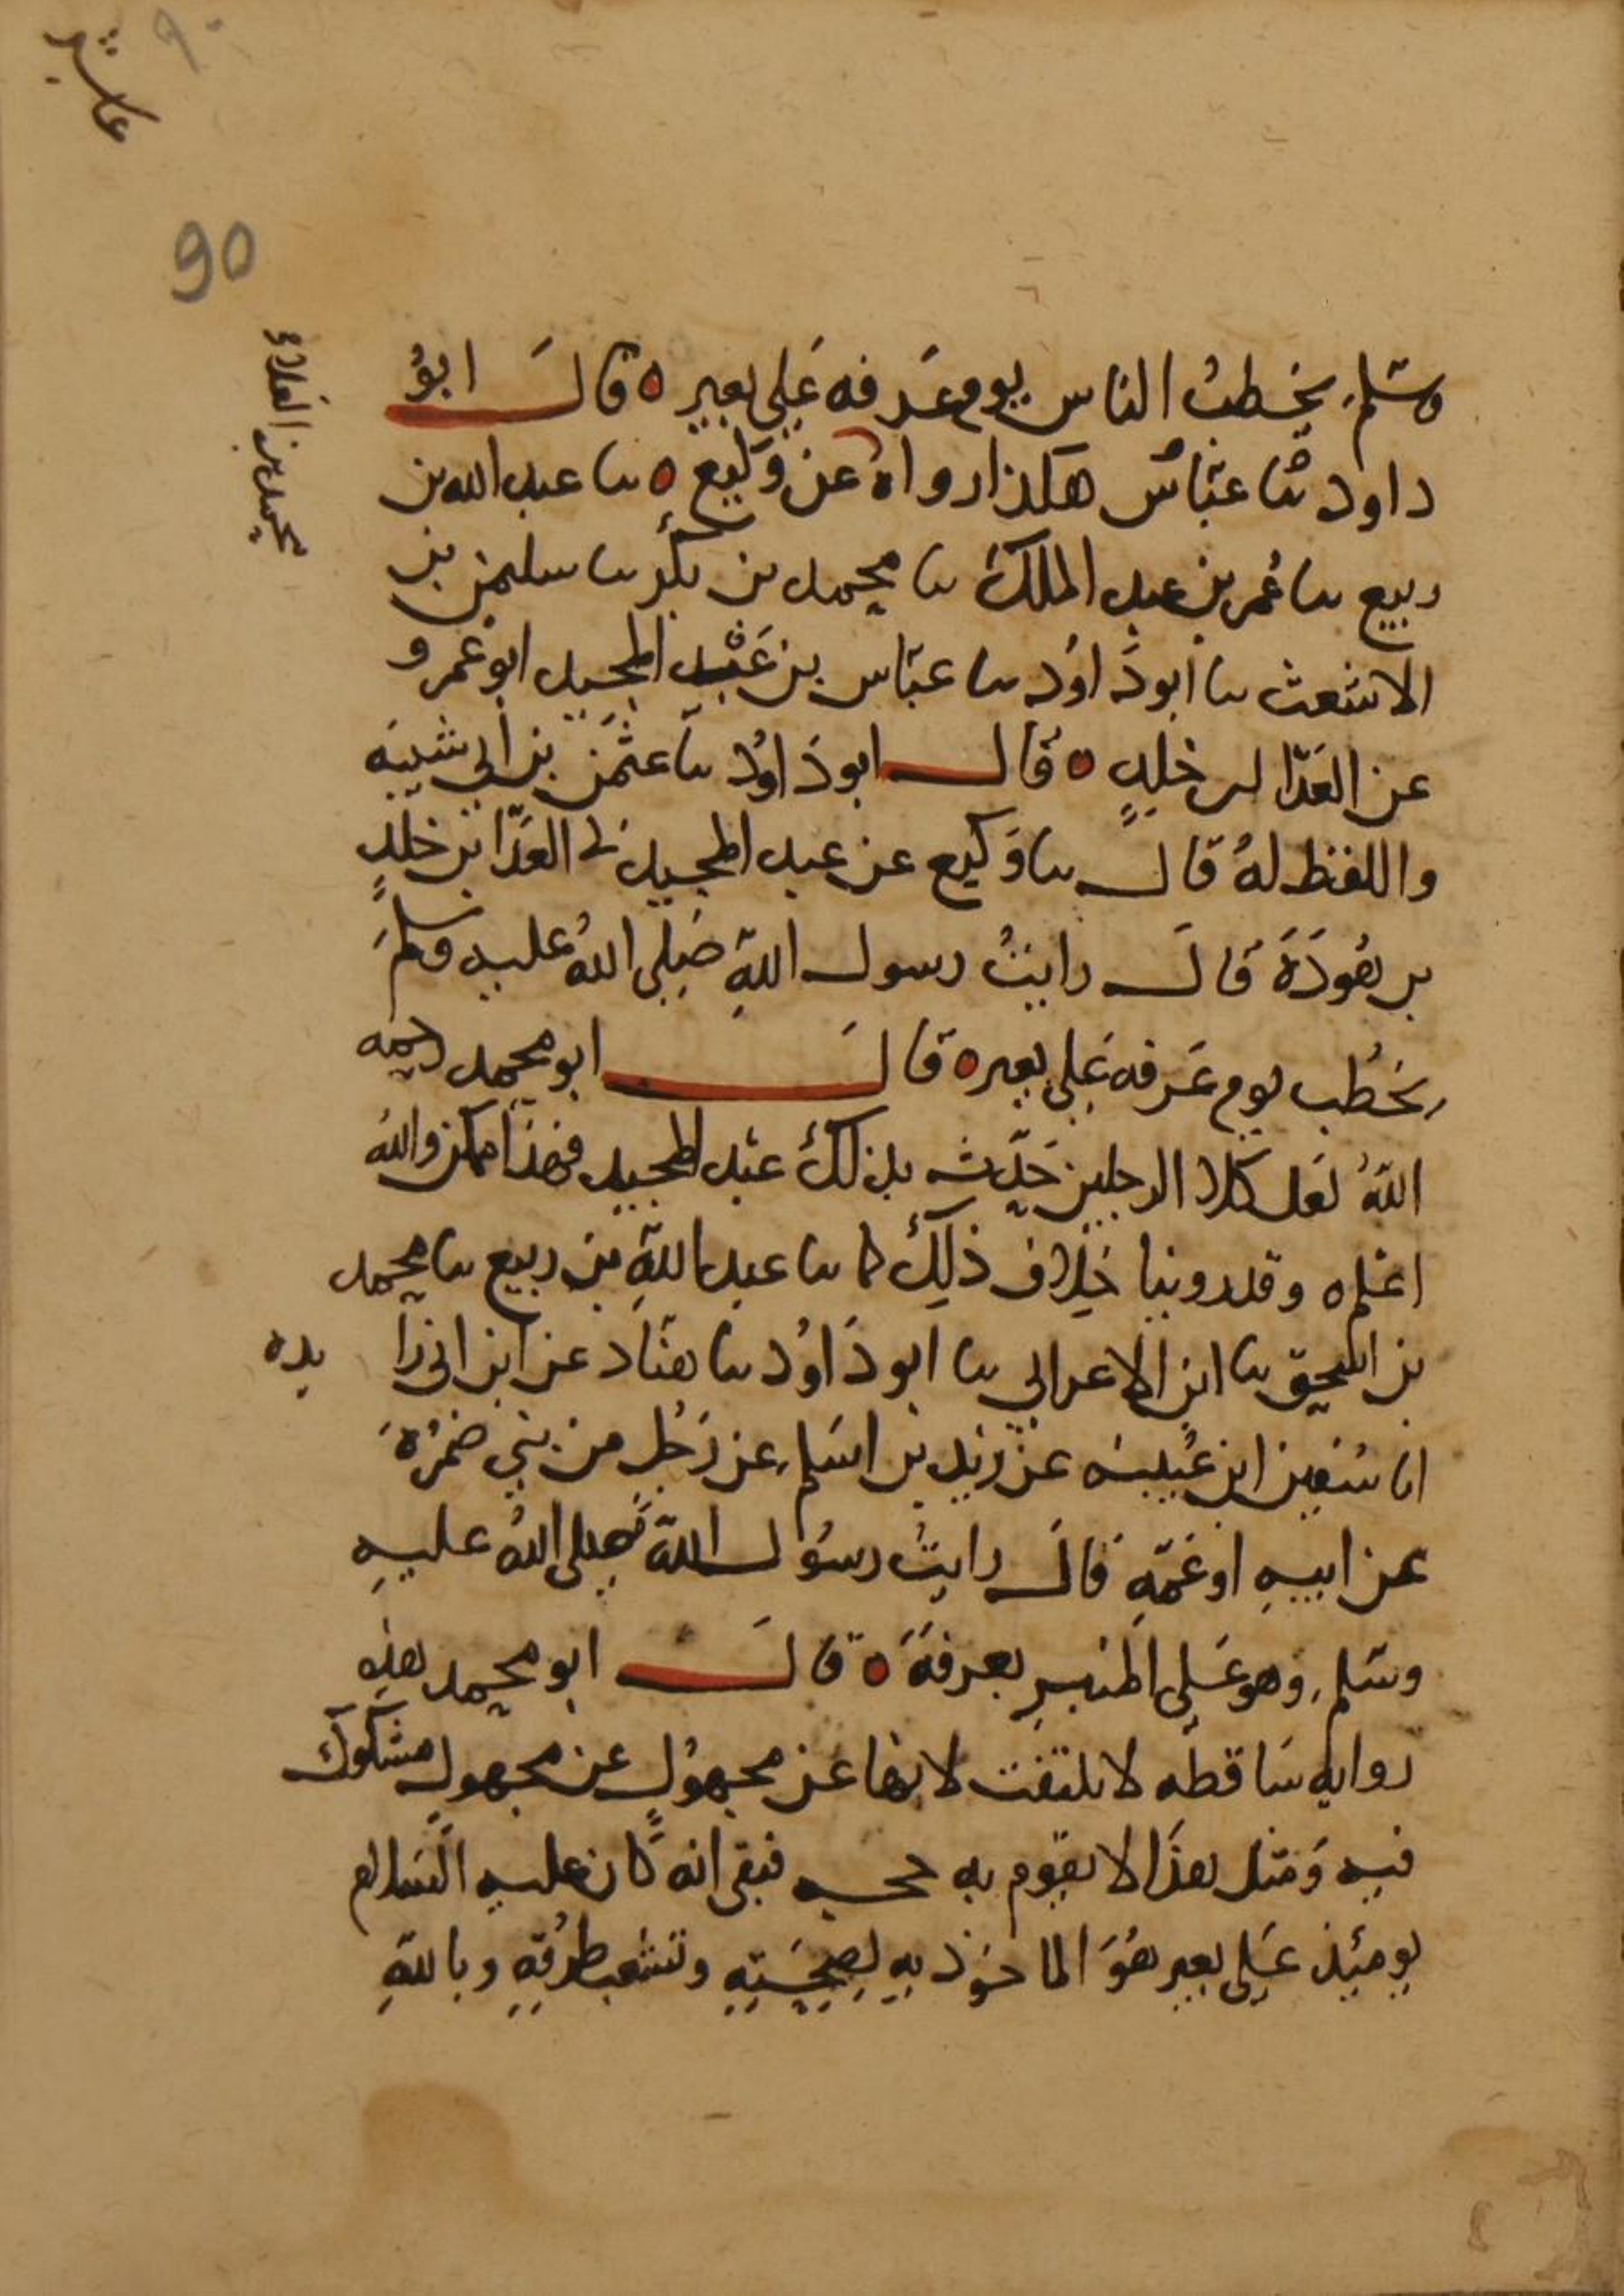 عاشر
٩٠
90
وسَلم يخطبُ الناس يوم عَرفه عَلى بعير ه قالَ ابوُ
داود ثنا عبّاسٌ هكذا رواهُ عن وَكيع ه ثنا عبد الله بن
ربيع ثنا عُمر بن عبد الملك ثنا محمد بن بكر ثنا سليمن بن
الاشعث ثنا ابو دَاوُد ثنا عبّاس بن عَبْد المجيد ابو عَمرو
عن العَدّا بن خٰلِدٍ ه قال ابو دَاوُد ثنا عثمٰن بن ابي شَيبَه
واللفظ لهُ قال ثنا وَكيع عن عبد المجيد ني العَدّا بن خٰلدٍ
بن هَوذَةَ قالَ رايتُ رسول اللهِ صَلى اللهُ عليه وسلمَ
يخطُب يوم عَرفه عَلى بعير ه قالَ ابو محمد رحمه
اللهُ لعَل كلا الرجلين حَدّث بذلكَ عبد المجيد فهذا ممكن واللهُ
اعلم ه وقد روينا خِلاف ذلِكَ كما ثنا عبد اللهِ بن ربيع ثنا محمد
بن اسحٰق ثنا ابن الاعرابي ثنا ابو دَاوُد ثنا هنّاد عن ابن ابي زا
يده
انا سُفين ابن عُيينه عن زيد بن اسَلم عن رَجُل من بني ضَمْرَةَ
عن ابيهِ او عَمّهِ قالَ رايتُ رسُول اللهِ صلى اللهُ عليهِ
وسَلم وهو عَلى المنبرِ بعرفَةَ ه قالَ ابو محمد هذِه
روايه سَاقطه لا يلتفت لانها عن مجهوُلٍ عن مجهولٍ مشكوك
فيه وَمثل هذَا لا يقوم به حجه فبقى انه كَان عليه السَلام
يومئِذ عَلى بعير هُوَ الماخوُذ بِهِ لِصِحَّتِهِ وتَشَعب طُرُقِهِ وباللهِ
محمد بن العلاء